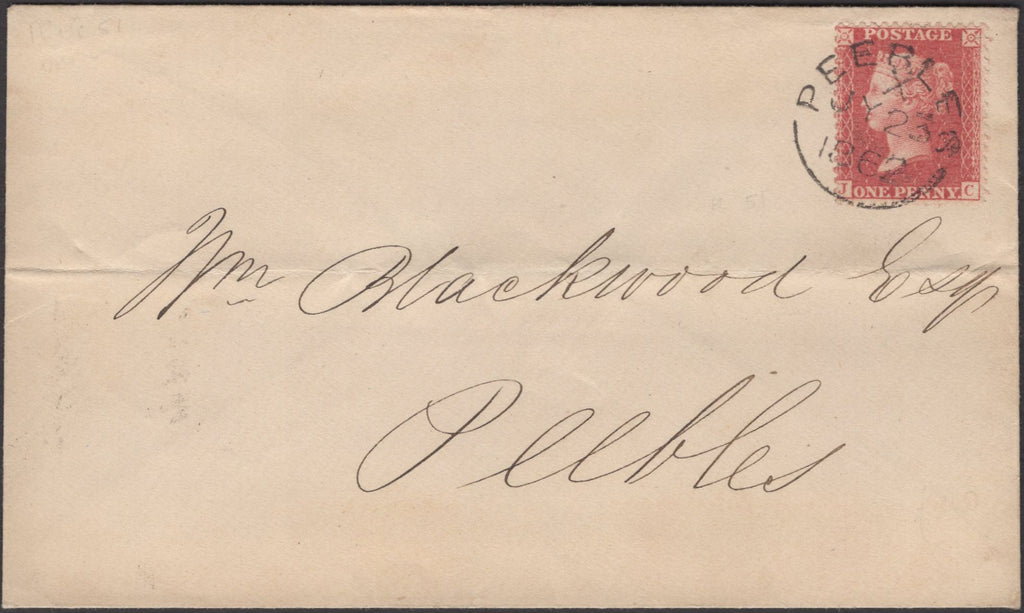 POSTAGE
PEEBLES
JY 23
1862
J ONE PENNY. C
Wm Blackwood Esqr
Peebles